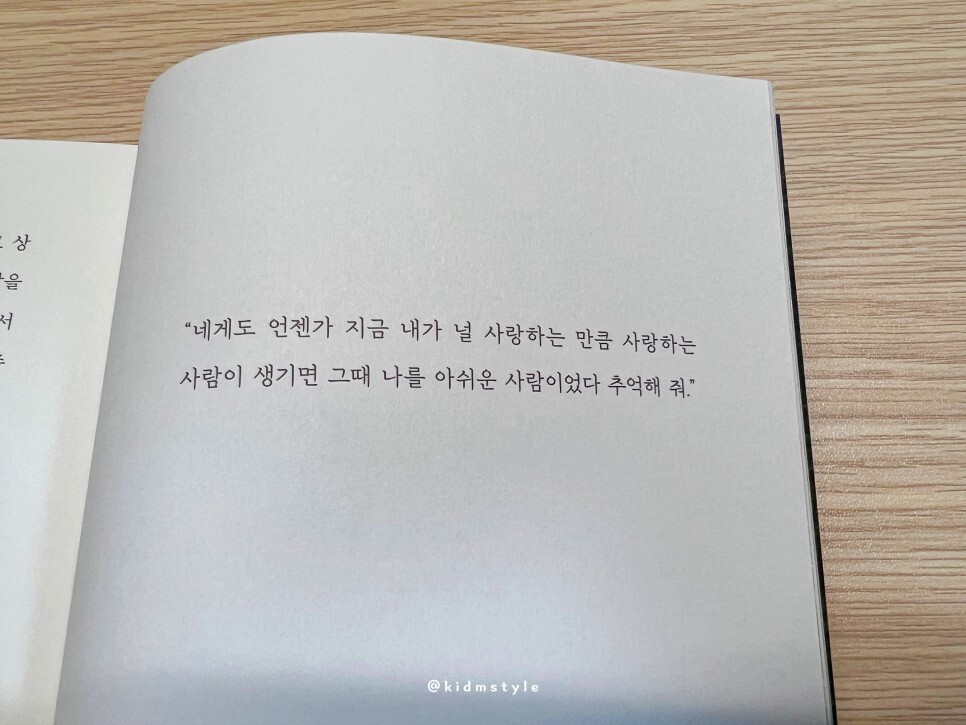 상
을
서
“네게도 언젠가 지금 내가 널 사랑하는 만큼 사랑하는
사람이 생기면 그때 나를 아쉬운 사람이었다 추억해 줘.”
@kidmstyle